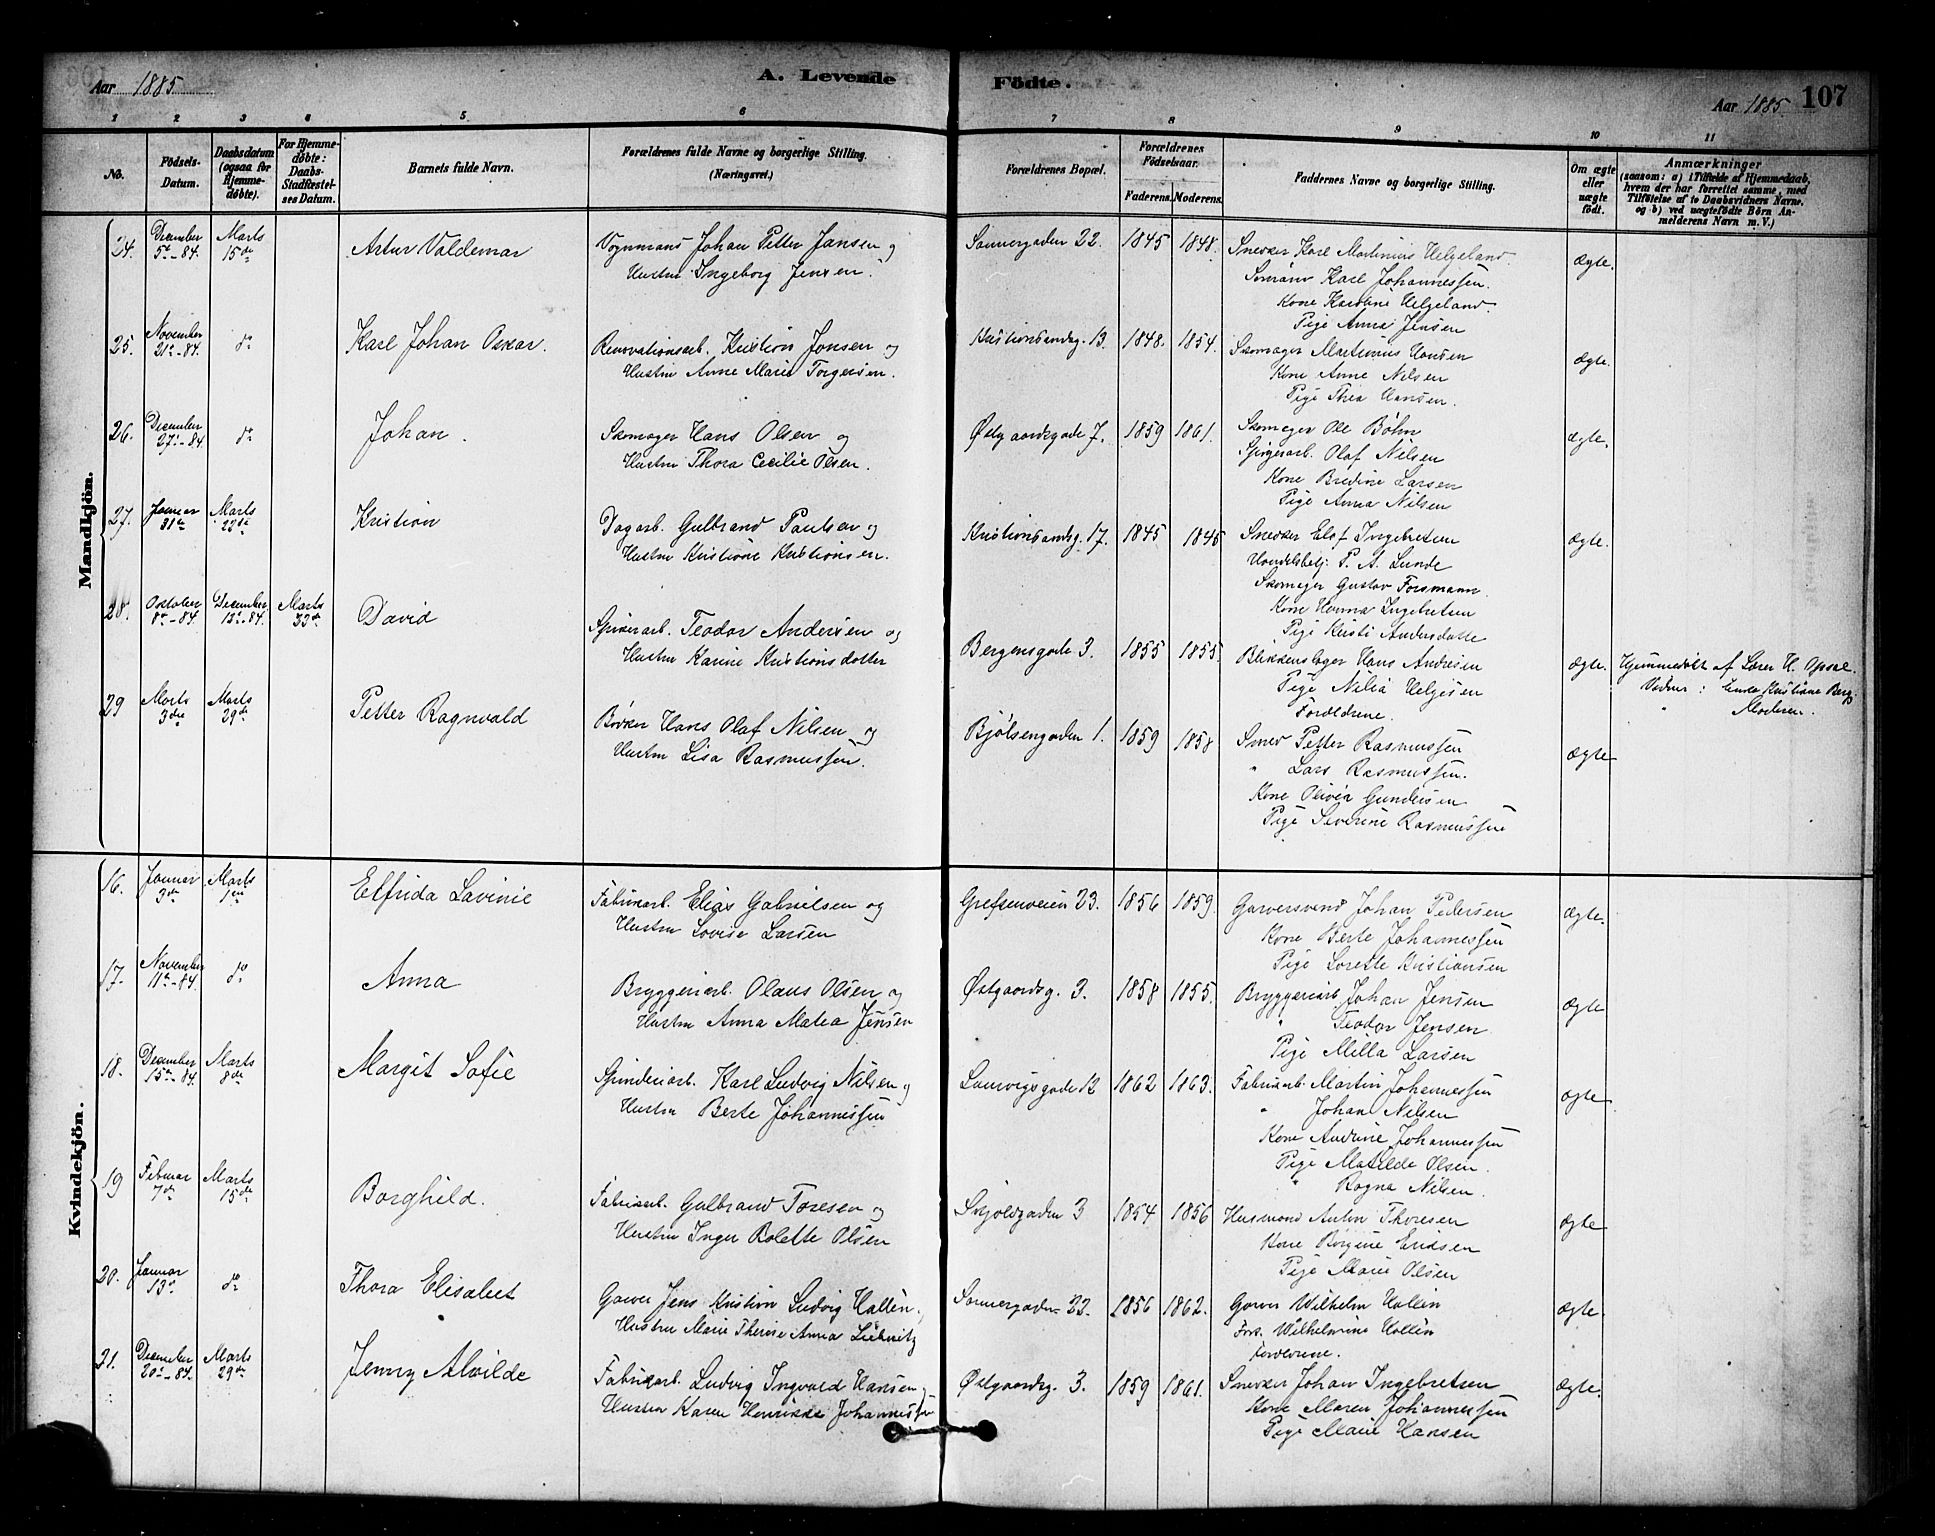 Aar 1885
A. Levende
Födte.
Aar 1885. 107
1 2 3 4 5 6 7 8 9 10 11
No.
Födsels-Datum.
Daabsdatum (ogsaa for Hjemmedøbte).
For Hjemmedøbte: Daabs-Stadfæstelses Datum.
Barnets fulde Navn.
Forældrenes fulde Navne og borgerlige Stilling. (Næringsvei.)
Forældrenes Bopæl.
Forældrenes Födselsaar.
Faderens. Moderens.
Faddernes Navne og borgerlige Stilling.
Om ægte eller uægte födt.
Anmærkninger (saasom: a) i Tilfælde af Hjemmedaab, hvem der har forrettet samme, med Tilföielse af to Daabsvidners Navne, og b) ved uægtefödte Börn Anmelderens Navn m. V.)
Mandkjön.
24. December 5te-84. Marts 15de Artur Valdemar
Vognmand Johan Petter Jansen og
Hustru Ingeborg Jensen.
Sannergaden 22. 1845 1848.
Snekker Karl Martinius Helgeland.
Sømand Karl Johannessen.
Kone Karoline Helgeland.
Pige Anna Jensen
ægte.
25. November 21de-84. do Karl Johan Oskar.
Renovationsarb. Kristian Jonsen og
Hustru Anne Marie Torgersen.
Kristiansandsg. 13. 1848. 1854.
Skomager Martinius Hansen
Kone Anne Nilsen
Pige Thea Hansen.
ægte.
26. December 27de-84 do Johan.
Skomager Hans Olsen og
Hustru Thora Cecilie Olsen.
Østgaardsgade 7. 1859 1861.
Skomager Ole Bøhn
Spigerarb. Olaf Nilsen
Kone Bredine Larsen
Pige Anna Nilsen
ægte.
27. Januar 31te Marts 22de Kristian
Dagarb. Gulbrand Paulsen og
Hustru Kristiane Kristiansen.
Kristiansandsg. 17. 1845 1845
Snekker Elof Ingebretsen
Handelsbetj. P. A. Lunde
Skomager Gustav Forsmann.
Kone Hanna Ingebretsen
Pige Kristi Andersdatter
ægte.
28. October 8de-84. December 12te-84. Marts 22de. David
Spigerarb. Teodor Andersen og
Hustru Karine Kristiansdatter
Bergensgade 3. 1855 1855.
Blikkenslager Hans Andresen
Pige Nilia Helgesen
Forældrene.
ægte. Hjemmedøbt af Lærer H. Opsal.
Vidner: Enke Kristiane Berg
" Moderen.
29 Marts 3die Marts 29de Petter Ragnvald
Bødker Hans Olaf Nilsen og
Hustru Lisa Rasmussen.
Bjølsengaden 1. 1859 1858
Smed Petter Rasmussen
" Lars Rasmussen.
Kone Olivia Gundersen
Pige Severine Rasmussen
ægte
Kvindekjön.
16. Januar 3de Marts 1ste Elfrida Lavinie
Fabrikarb. Elias Gabrielsen og
Hustru Lovise Larsen
Grefsenveien 23. 1856 1859.
Garversvend Johan Pedersen
Kone Berte Johannessen
Pige Lorette Kristiansen
ægte.
17. November 11te-84. do Anna
Bryggeriarb. Olaus Olsen og
Hustru Anna Matea Jensen
Østgaardsg. 3. 1858 1855.
Bryggeriarb. Johan Jensen
" Teodor Jensen.
Pige Milla Larsen
ægte
18. December 15de-84. Marts 8de Margit Sofie
Spinderiarb. Karl Ludvig Nilsen og
Hustru Berte Johannessen
Laurvigsgade 12 1862 1863.
Fabrikarb. Martin Johannessen
" Johan Nilsen
Kone Andrine Johannessen
Pige Matilde Olsen.
" Ragna Nilsen.
ægte
19 Februar 7de Marts 15de Borghild.
Fabrikarb. Gulbrand Toresen og
Hustru Inger Bolette Olsen
Skjoldgaden 3 1854 1856
Husmand Anton Thoresen
Kone Borgine Eriksen
Pige Marie Olsen
ægte
20. Januar 13de do Thora Elisabet
Garver Jens Kristian Ludvig Hallén.
Hustru Marie Therese Anna Liebnitz
Sannergaden 23. 1856 1862.
Garver Wilhelm Hallén
Frk. Wilhelmine Hallén
Forældrene.
ægte.
21. December 20de-84. Marts 29de Jenny Alvilde
Fabrikarb. Ludvig Ingvald Hansen og
Hustru Karen Henrikke Johannessen
Østgaardsg. 3. 1859 1861.
Snekker Johan Ingebretsen
Kone Maren Johannessen
Pige Marie Hansen
ægte.